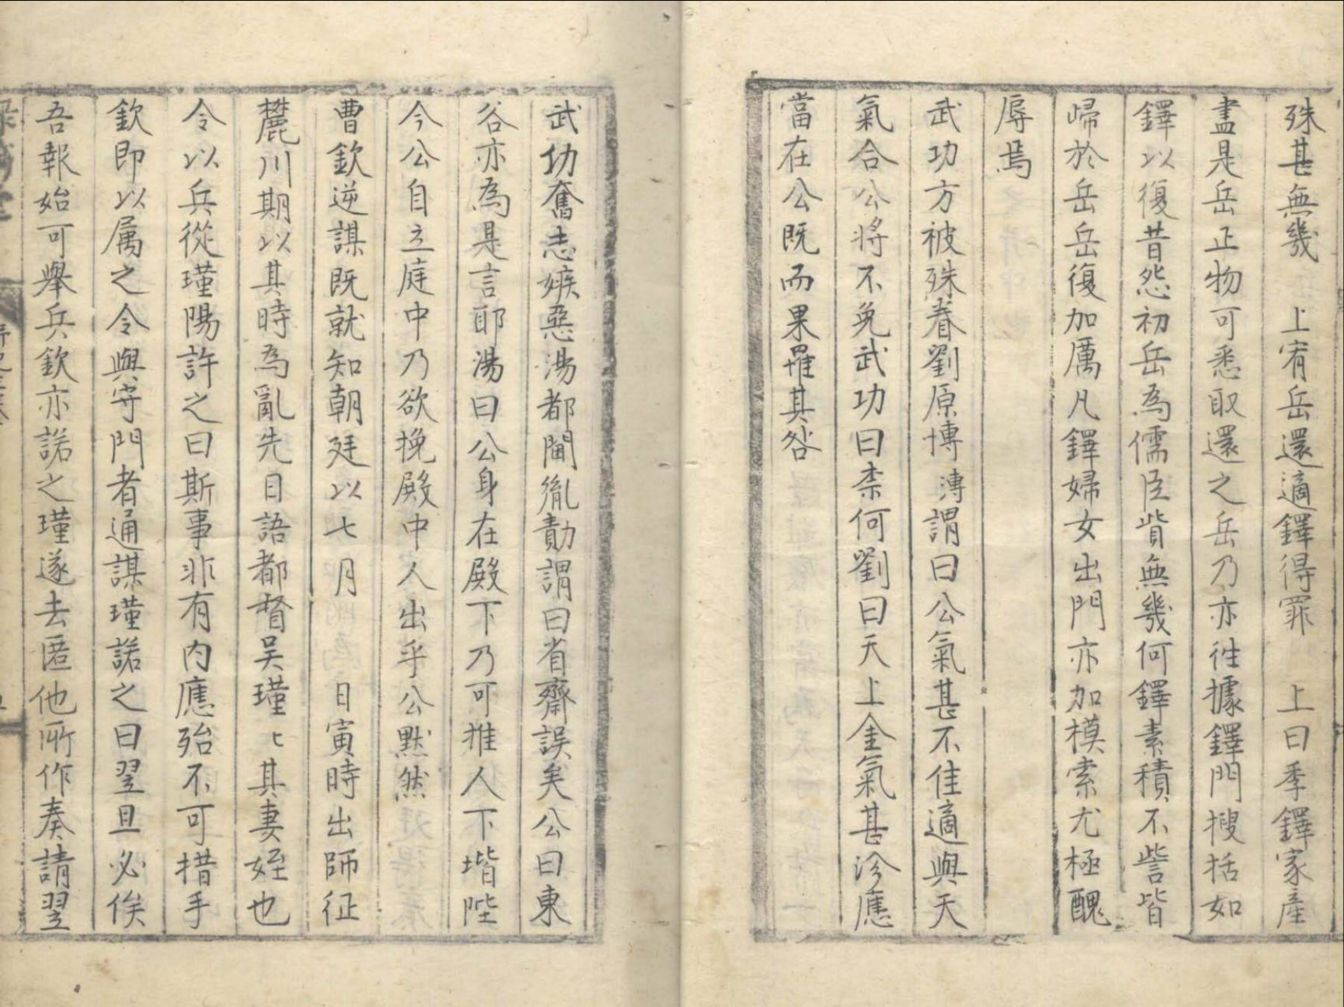 殊甚無幾　上宥岳還適鐸得罪　上曰季鐸家產
盡是岳正物可悉取還之岳乃亦徃據鐸門搜括如
鐸以復昔怨初岳為儒臣貲無幾何鐸素積不訾皆
歸於岳岳復加厲凡鐸婦女出門亦加模索尤極醜
辱焉
武功方被殊眷劉原博溥謂曰公氣甚不佳適與天
氣合公將不免武功曰柰何劉曰天上金氣甚沴應
當在公既而果罹其咎
武功奮志嫉惡湯都閫胤勣謂曰省齋誤矣公曰東
谷亦為是言耶湯曰公身在殿下乃可推人下堦陛
今公自立庭中乃欲挽殿中人出乎公默然
曹欽逆謀既就知朝廷以七月　日寅時出師征
麓川期以其時為亂先日語都督吳瑾〻其妻姪也
令以兵從瑾陽許之曰斯事非有内應殆不可措手
欽即以属之令與守門者通謀瑾諾之曰翌旦必俟
吾報始可舉兵欽亦諾之瑾遂去匿他所作奏請翌